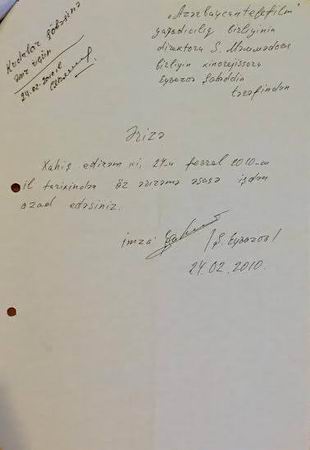 Kadrlar şöbəsinə
əmr üçün
24.02.2010
„Azərbaycantelefilm"
yaradıcılıq birliyinin
direktoru S. Məmmədova
birliyin kinorejissoru
Eyvazov Şəhabəddin
tərəfindən
Ərizə
Xahiş edirəm ki, 24.. fevral 2010-cu
il tarixindən öz ərizəmə əsasən işdən
azad edəsiniz.
imza / Ş. Eyvazov /
24.02.2010.